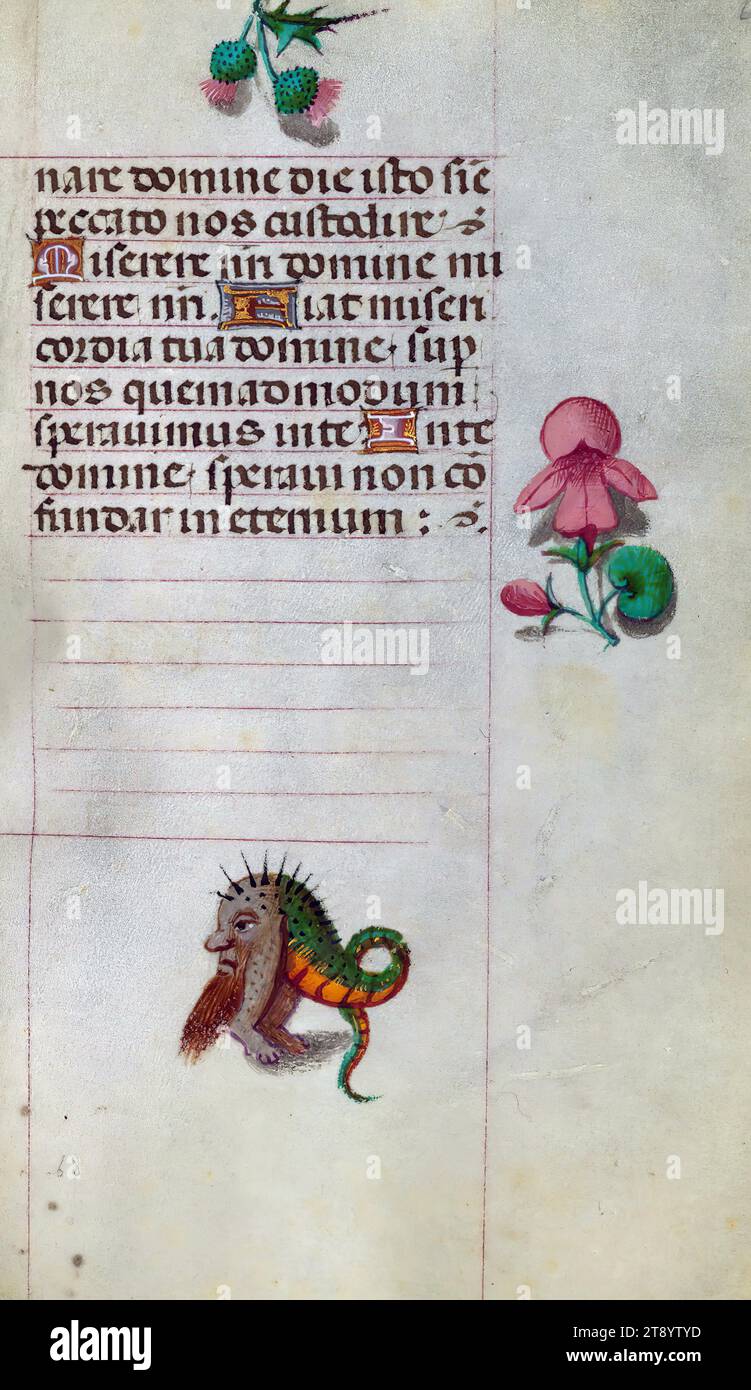 nare domine die isto siē
peccato nos custodire :
Miserere nr̄i domine mi
serere nr̄i. Fiat miseri
cordia tua domine, sup
nos quemadmodum
sperauimus in te In te
domine, speraui non cō
fundar in eternum :
alamy
alamy
alamy
alamy
Image ID: 2T8YTYD
www.alamy.com